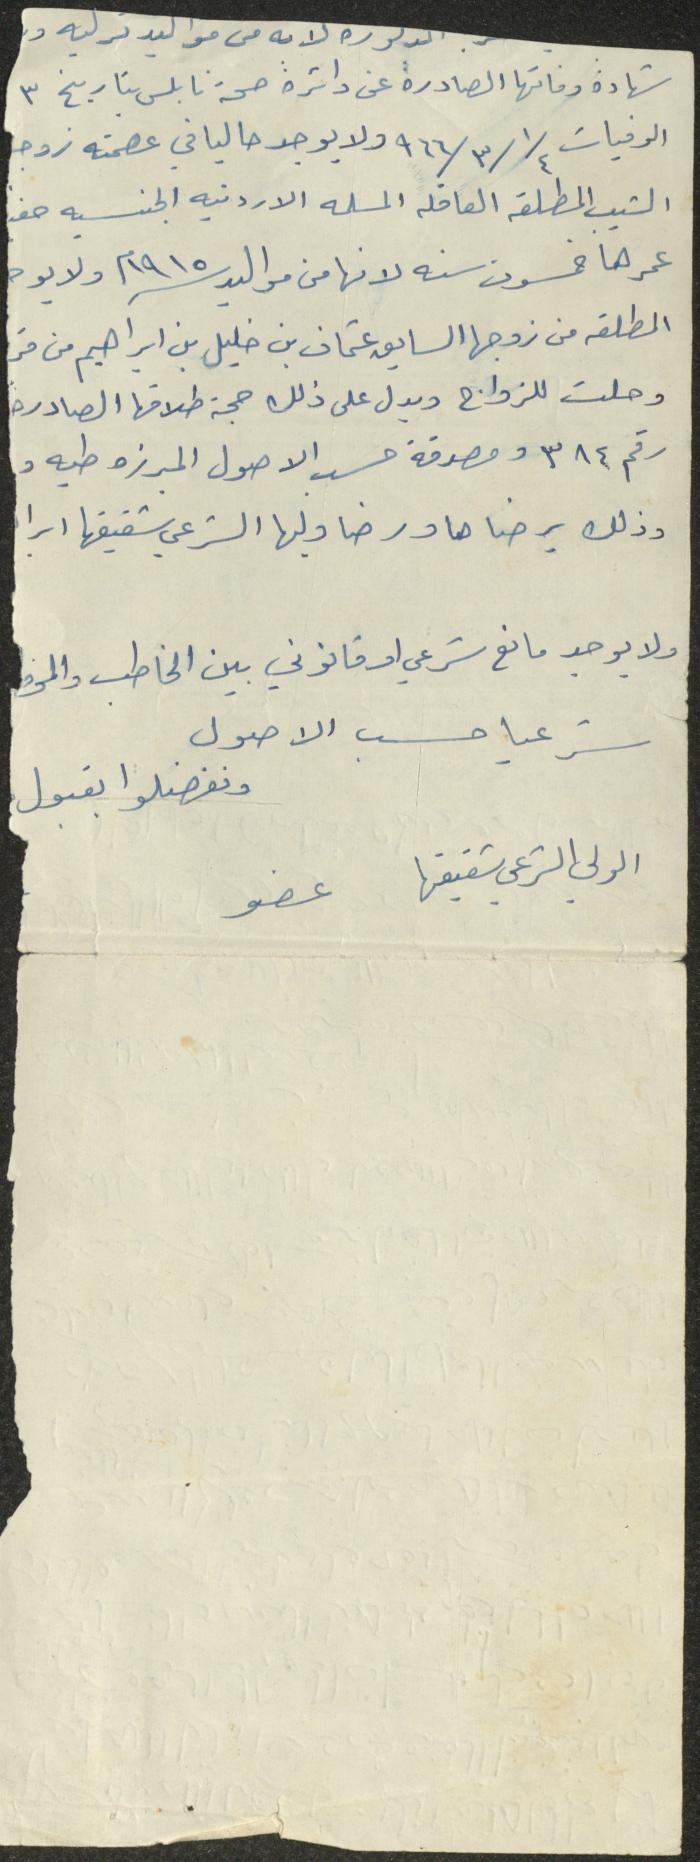 المذكوره لانه من مواليد تركيه
شهادة وفاتها الصادرة عن دائرة صحة نابلس بتاريخ ٣
الوفيات ١/٤ /٣/ ٩٦٦ ولا يوجد حاليا في عصمته زوجـ
الثيب المطلقه العاقله المسلمه الاردنيه الجنسيه
عمرها خمسون سنه لانها من مواليد سنة ١٩١٥م ولا يوجـ
المطلقه من زوجها السابق عثمان بن خليل بن ابراهيم من
وحلت للزواج ويدل على ذلك حجة طلاقها الصادره
رقم ٣٨٤ ومصدقة حسب الاصول المبرزه طيه و
وذلك برضاها ورضا وليها الشرعي شقيقها ابرا
ولا يوجد مانع شرعي او قانوني بين الخاطب والمخطـ
شرعيا حسب الاصول
وتفضلوا بقبول
الولي الشرعي شقيقها عضو